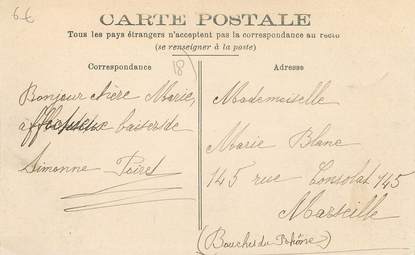 6€
CARTE POSTALE
Tous les pays étrangers n'acceptent pas la correspondance au recto
(se renseigner à la poste)
Correspondance
Bonjour chère Marie,
affectueux baiser de
Simonne Poiret
18
Adresse
Mademoiselle
Marie Blanc
145 rue Consolat 145
Marseille
(Bouches du Rhône)